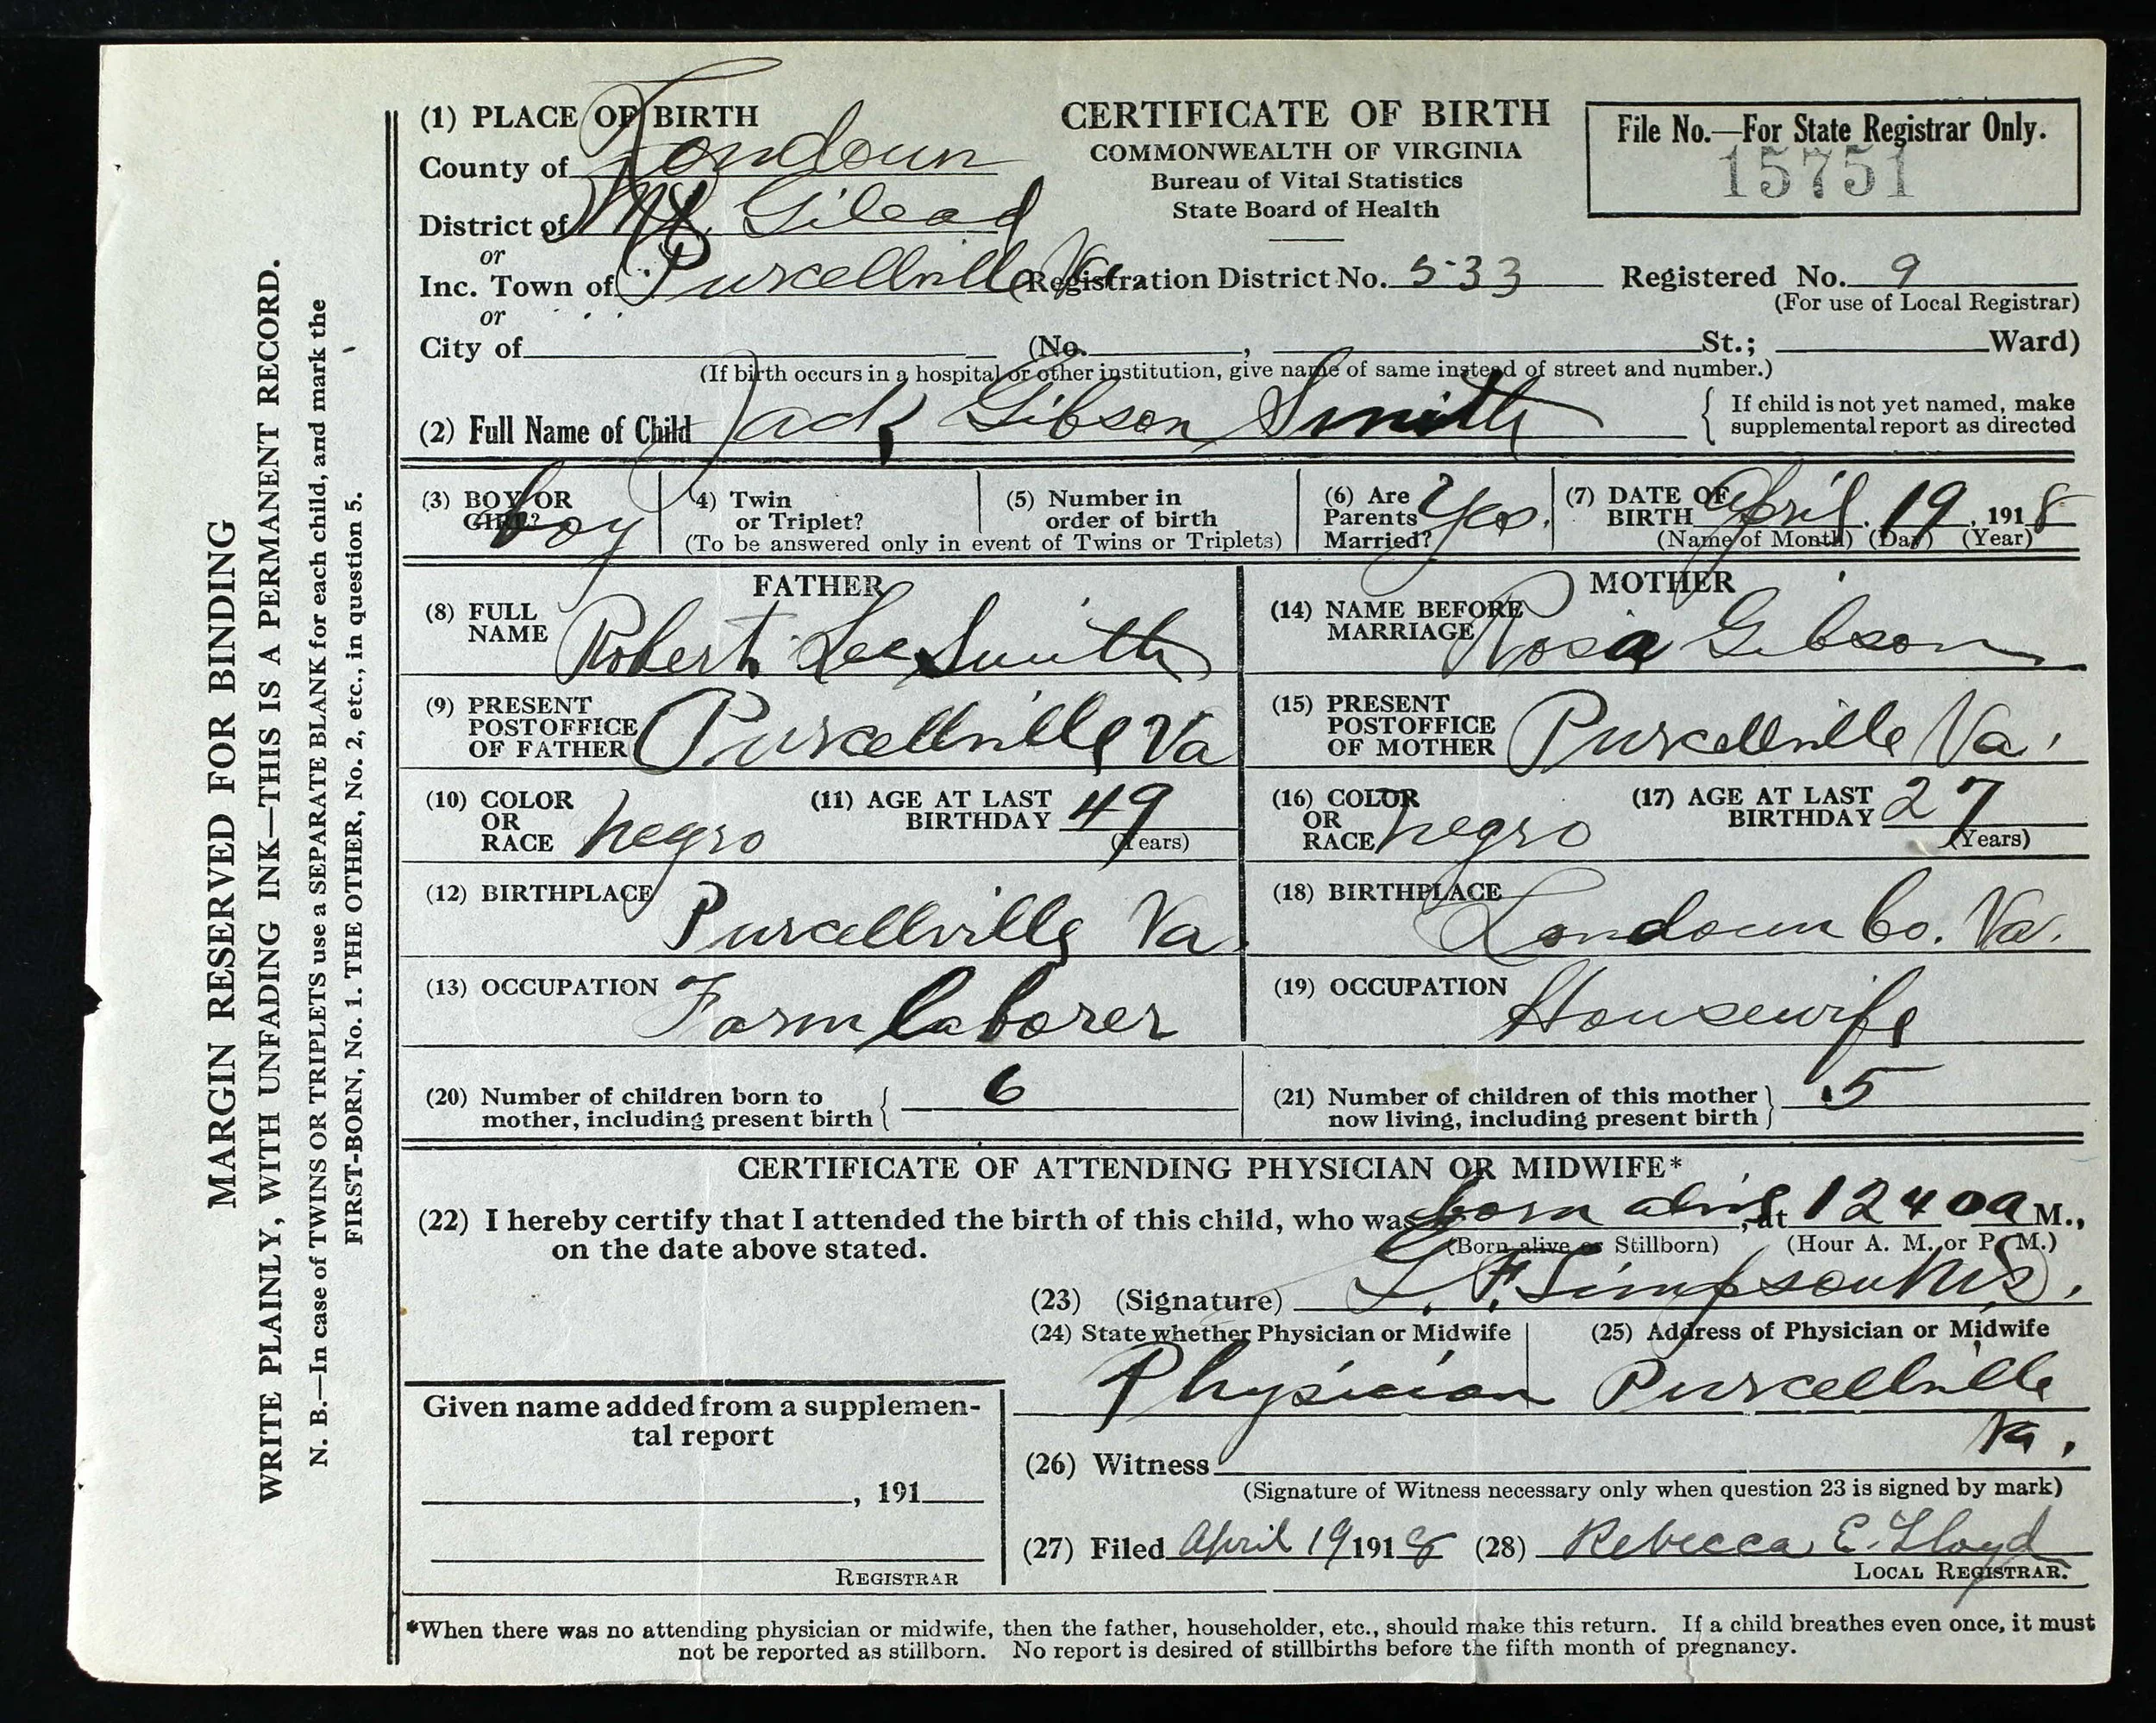 MARGIN RESERVED FOR BINDING
WRITE PLAINLY, WITH UNFADING INK—THIS IS A PERMANENT RECORD.
N. B.—In case of TWINS OR TRIPLETS use a SEPARATE BLANK for each child, and mark the
FIRST-BORN, No. 1. THE OTHER, No. 2, etc., in question 5.
(1) PLACE OF BIRTH
County of Loudoun
District of Mt Gilead
or
Inc. Town of Purcellville Va
or
City of (No. , St.; Ward)
CERTIFICATE OF BIRTH
COMMONWEALTH OF VIRGINIA
Bureau of Vital Statistics
State Board of Health
File No.—For State Registrar Only.
15751
(Registration District No. 533 Registered No. 9
(For use of Local Registrar)
(If birth occurs in a hospital or other institution, give name of same instead of street and number.)
(2) Full Name of Child Jack Gibson Smith
{ If child is not yet named, make
supplemental report as directed
(3) BOY OR
GIRL? boy
(4) Twin
or Triplet?
(5) Number in
order of birth
(To be answered only in event of Twins or Triplets)
(6) Are
Parents
Married? Yes.
(7) DATE OF
BIRTH April. 19, 1918
(Name of Month) (Day) (Year)
FATHER
(8) FULL
NAME Robert Lee Smith
(9) PRESENT
POSTOFFICE
OF FATHER Purcellville Va
(10) COLOR
OR
RACE negro
(11) AGE AT LAST
BIRTHDAY 49
(Years)
(12) BIRTHPLACE Purcellville Va.
(13) OCCUPATION Farm laborer
MOTHER
(14) NAME BEFORE
MARRIAGE Rosa Gibson
(15) PRESENT
POSTOFFICE
OF MOTHER Purcellville Va.
(16) COLOR
OR
RACE negro
(17) AGE AT LAST
BIRTHDAY 27
(Years)
(18) BIRTHPLACE Loudoun Co. Va.
(19) OCCUPATION Housewife
(20) Number of children born to
mother, including present birth { 6
(21) Number of children of this mother
now living, including present birth } 5
CERTIFICATE OF ATTENDING PHYSICIAN OR MIDWIFE*
(22) I hereby certify that I attended the birth of this child, who was born alive, at 12 40 a M.,
(Born alive or Stillborn) (Hour A. M. or P. M.)
on the date above stated.
(23) (Signature) L. F. Simpson M.D.
(24) State whether Physician or Midwife
Physician
(25) Address of Physician or Midwife
Purcellville
Va.
Given name added from a supplemen-
tal report
, 191
REGISTRAR
(26) Witness
(Signature of Witness necessary only when question 23 is signed by mark)
(27) Filed April 19 1918 (28) Rebecca E. Lloyd
LOCAL REGISTRAR.
*When there was no attending physician or midwife, then the father, householder, etc., should make this return. If a child breathes even once, it must
not be reported as stillborn. No report is desired of stillbirths before the fifth month of pregnancy.